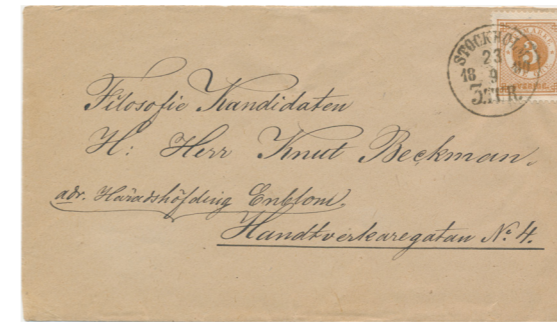 STOCKHOL
23
18 9
3.TUR.
3
SVERIGE
Filosofie Kandidaten
H: Herr Knut Beckman.
adr. Häradshöfding Enblom.
Handtverkaregatan No. 4.